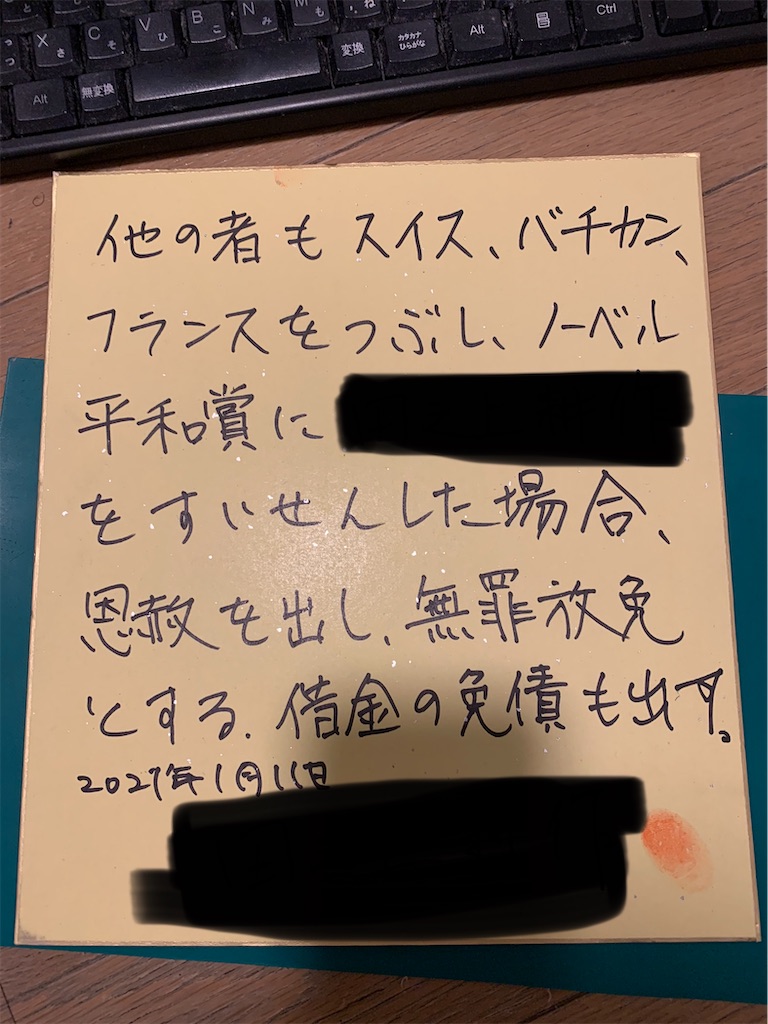 X さ
C そ
V ひ
B こ
N み
M も
Alt
無変換
変換
カタカナ
ひらがな
Alt
Ctrl
他の者もスイス、バチカン、
フランスをつぶし、ノーベル
平和賞に
をすいせんした場合、
恩赦を出し、無罪放免
とする。借金の免債も出す。
2021年1月11日